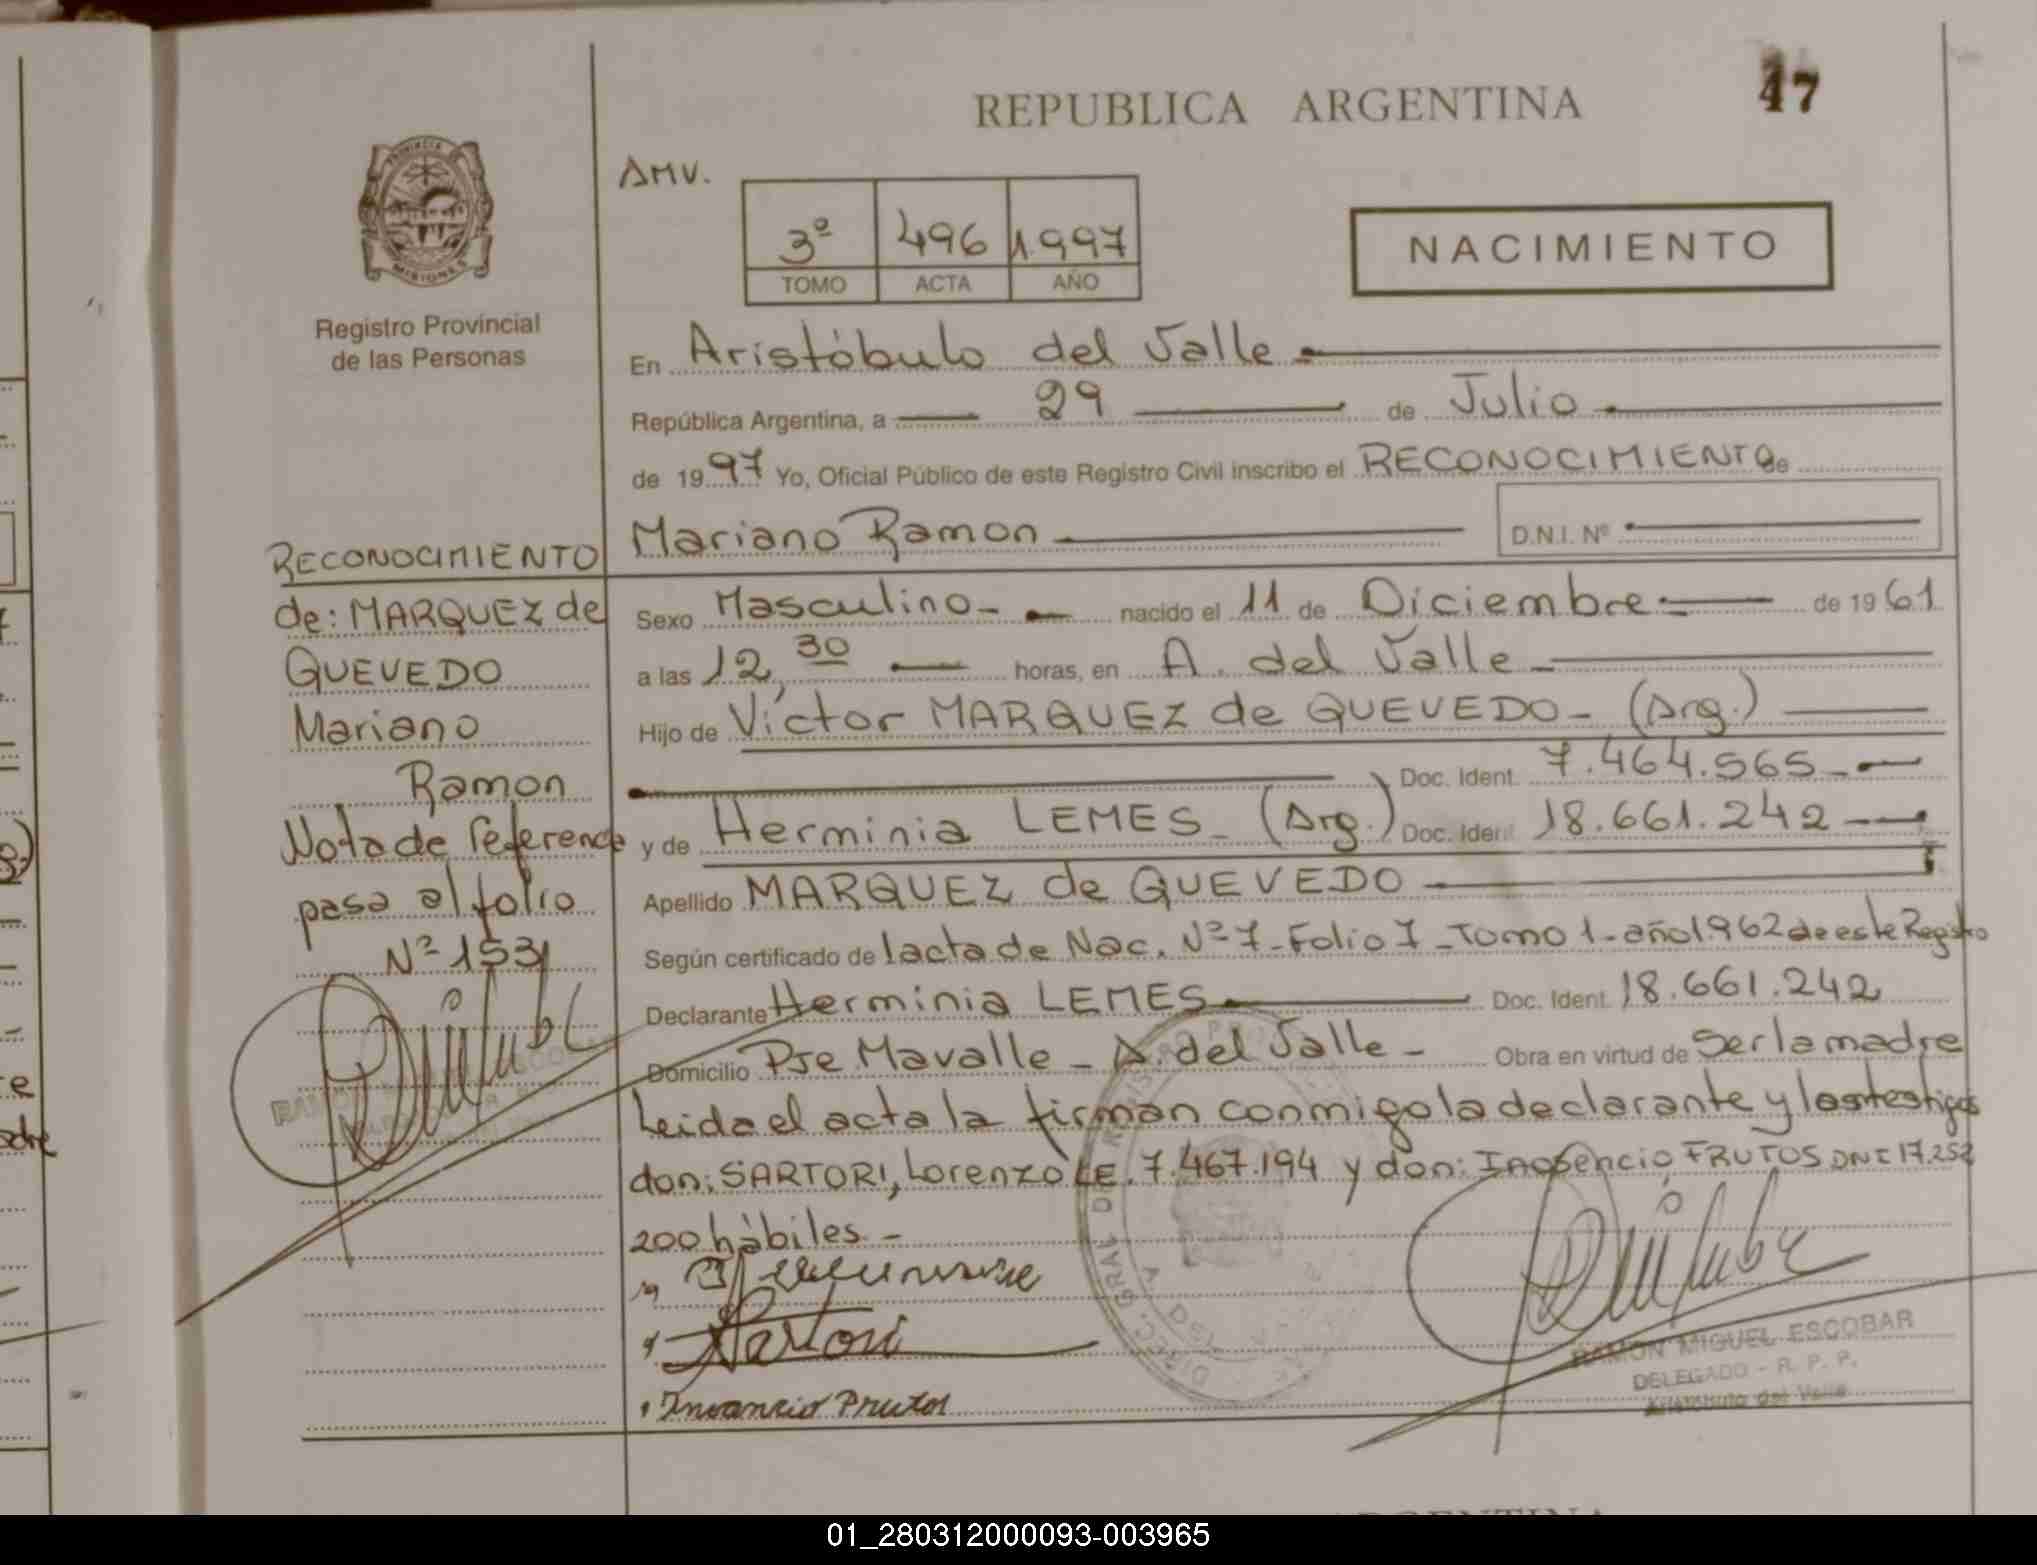 REPUBLICA ARGENTINA
47
PROVINCIA DE
MISIONES
Registro Provincial
de las Personas
AMV.
3º 496 1.997
TOMO ACTA AÑO
NACIMIENTO
En Aristóbulo del Valle
República Argentina, a 29 de Julio
de 1997 Yo, Oficial Público de este Registro Civil inscribo el RECONOCIMIENTO de
Mariano Ramon D.N.I. Nº
Sexo Masculino- nacido el 11 de Diciembre de 1961
a las 12,30 horas, en A. del Valle
Hijo de Víctor MARQUEZ de QUEVEDO- (Arg.)
Doc. Ident. 7.464.565
y de Herminia LEMES- (Arg.) Doc. Ident. 18.661.242
Apellido MARQUEZ de QUEVEDO
Según certificado de lacta de Nac. Nº 7-Folio 7-Tomo 1-año 1962 de este Registro
Declarante Herminia LEMES Doc. Ident. 18.661.242
Domicilio Pje Mavalle - A. del Valle - Obra en virtud de Ser la madre
Leida el acta la firman conmigo la declarante y los testigos
don: SARTORI, Lorenzo LE. 7.467.194 y don: Inosencio FRUTOS DNI 17.252
200 hábiles.-
Sartori
Frutos
RAMON MIGUEL ESCOBAR
DELEGADO - R. P. P.
Aristóbulo del Valle
RECONOCIMIENTO
de: MARQUEZ de
QUEVEDO
Mariano
Ramon
Nota de referencia
pasa al folio
Nº 153
01_280312000093-003965